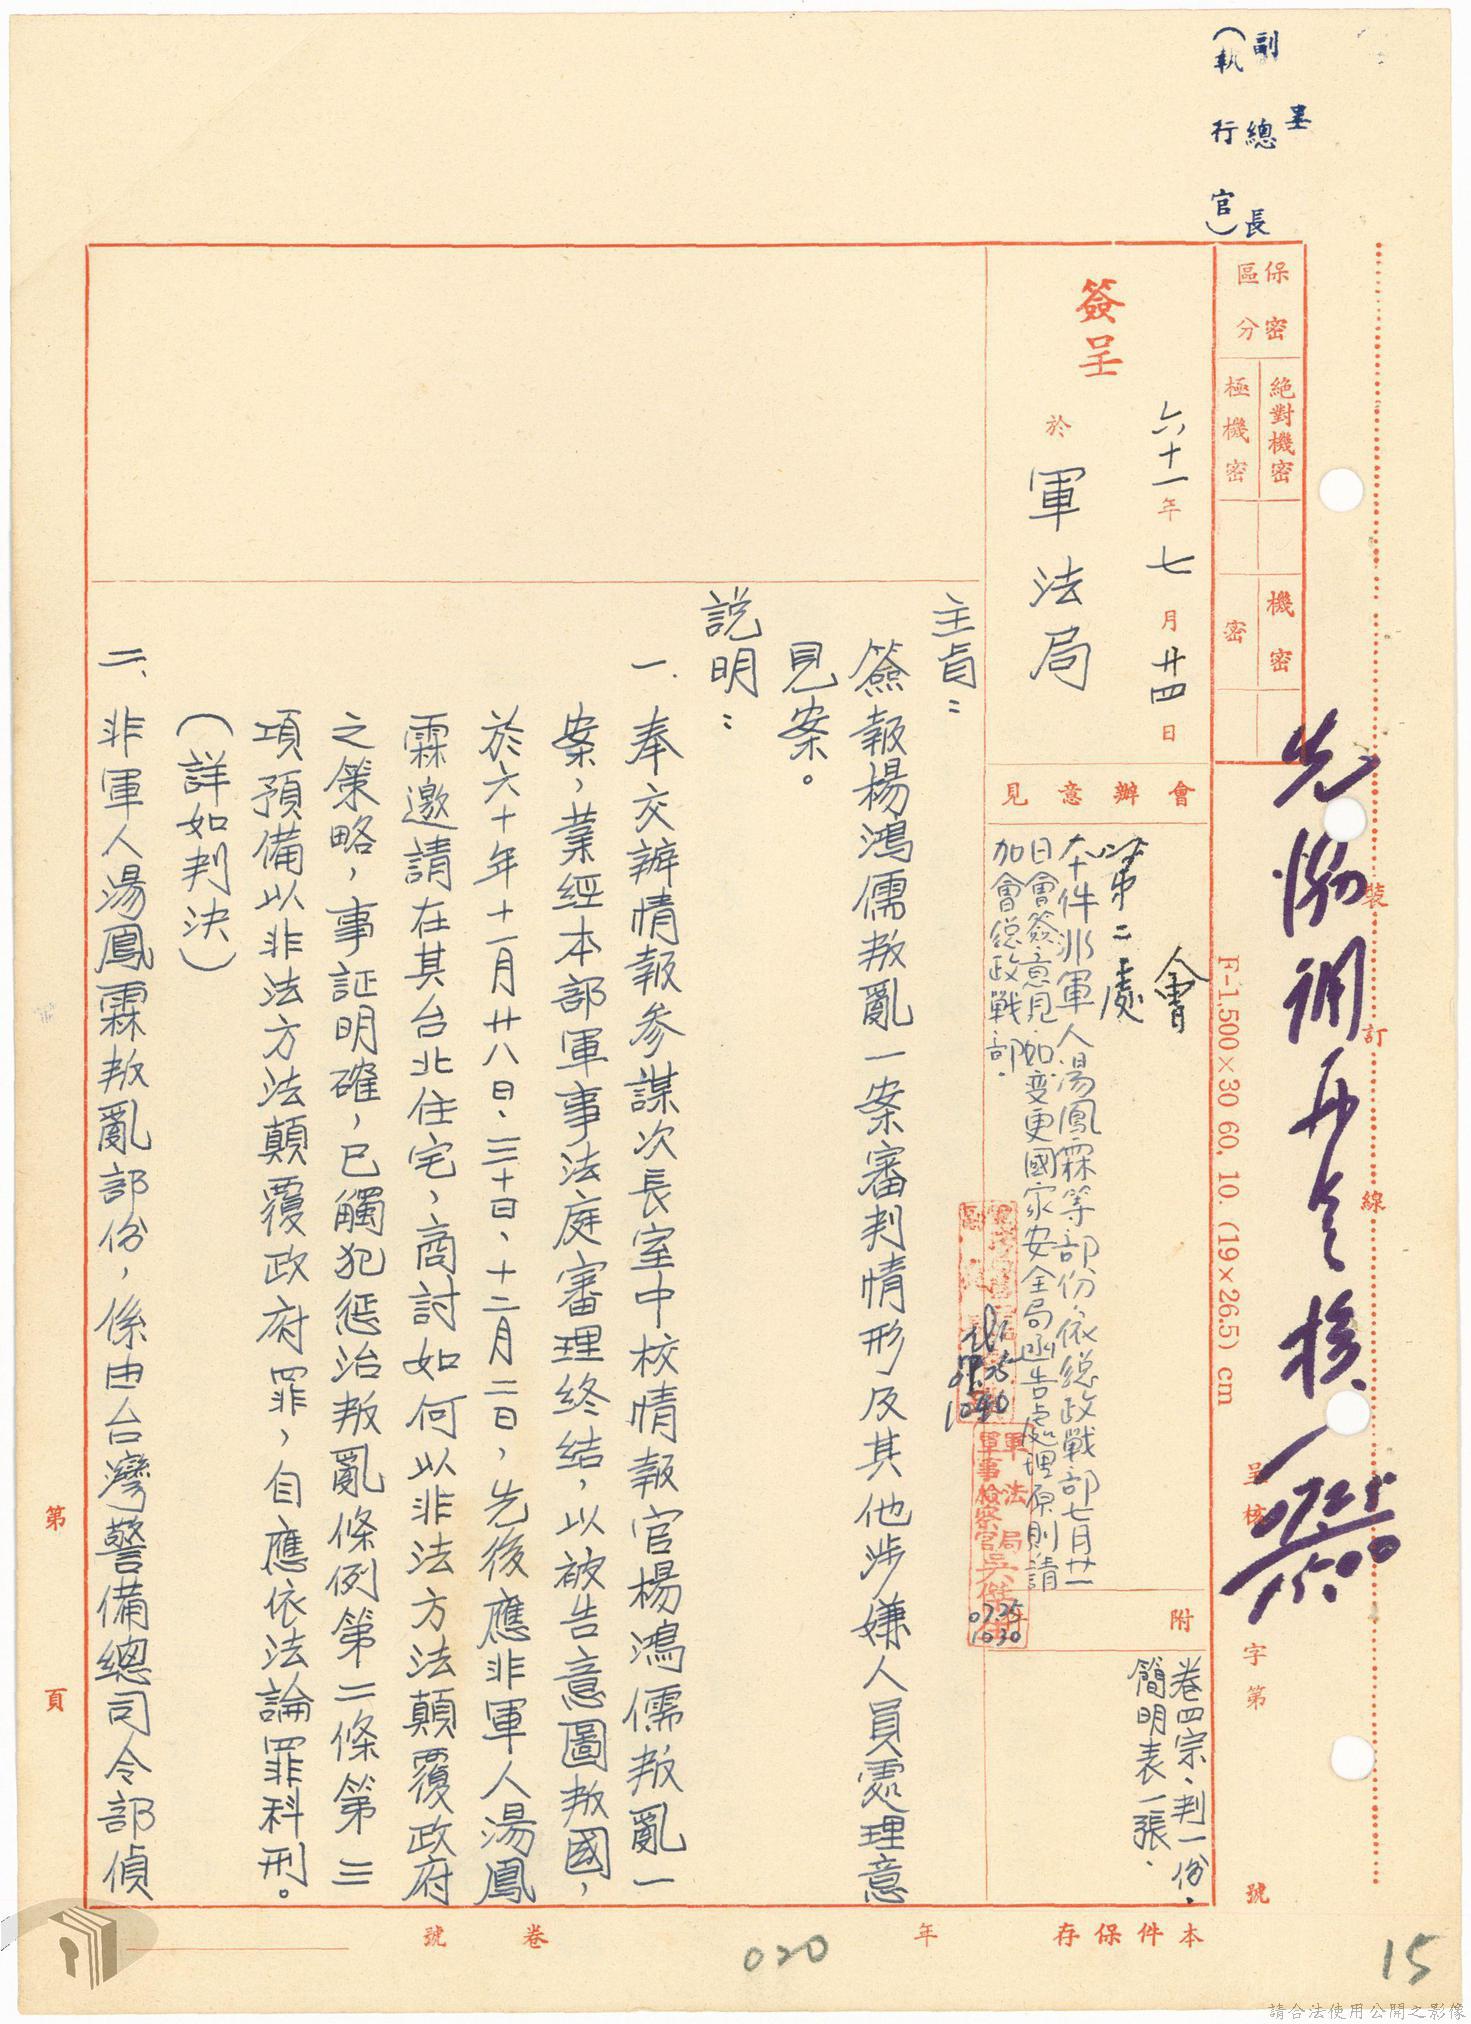 呈
副總長
(執行官)
保密區分
絕對機密
極機密
機密
密
簽呈
六十一年七月廿四日
於軍法局
會辦意見
會
第二處
本件非軍人湯鳳霖等部份,依總政戰部七月廿一
日會簽意見,如變更國家安全局函告處理原則請
加會總政戰部.
軍法局
軍事檢察官吳傑
07.25
1030
附
卷四宗、判一份、
簡明表一張.
主旨:
簽報楊鴻儒叛亂一案審判情形及其他涉嫌人員處理意
見案。
說明:
一.奉交辦情報參謀次長室中校情報官楊鴻儒叛亂一
案,業經本部軍事法庭審理終結,以被告意圖叛國,
於六十年十一月廿八日、三十日、十二月二日,先後應非軍人湯鳳
霖邀請在其台北住宅,商討如何以非法方法顛覆政府
之策略,事証明確,已觸犯懲治叛亂條例第二條第三
項預備以非法方法顛覆政府罪,自應依法論罪科刑。
(詳如判決)
二、非軍人湯鳳霖叛亂部份,係由台灣警備總司令部偵
裝訂線
F-1,500×30 60. 10. (19×26.5) cm
呈核
07.25
1500
字第 號
第 頁
本件保存 年
卷 號
020
15
請合法使用公開之影像